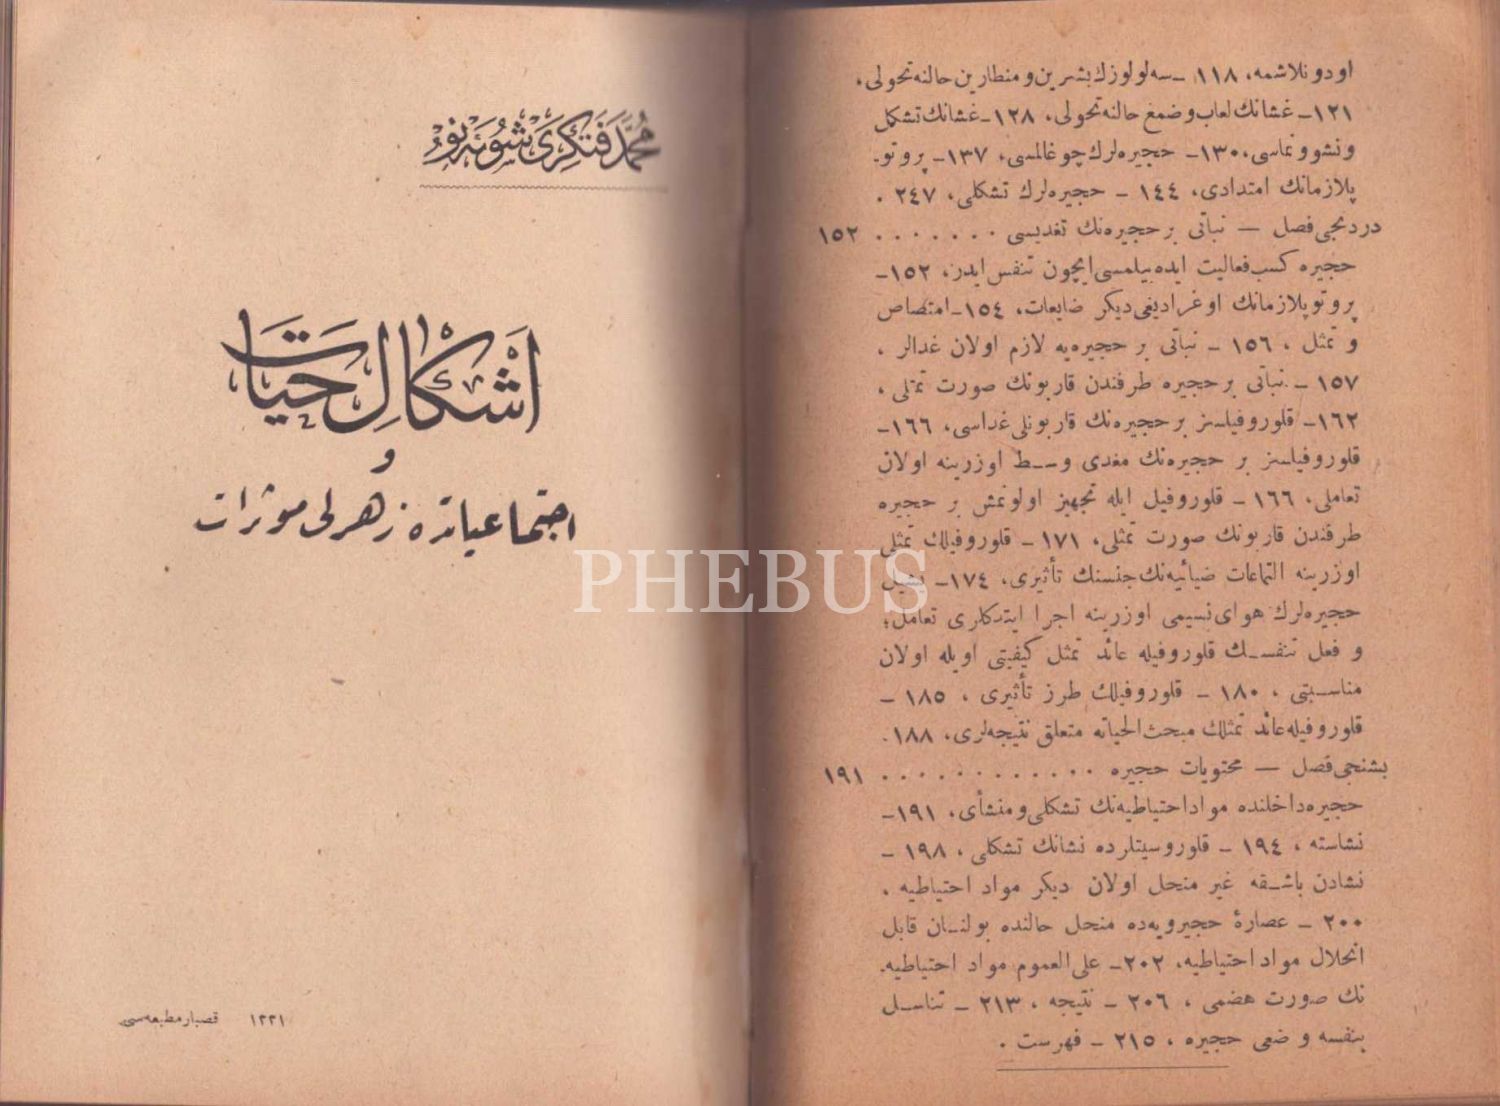 اودونلاشمه، ١١٨ ـ سه‌لولوزك بشرين و منطارين حالنه تحولى،
١٢١ـ غشانك لعاب و ضمغ حالنه تحولى، ١٢٨ـ غشانك تشكل
و نشو و نماسى، ١٣٠ـ حجيره‌لرك چوغالمسى، ١٣٧ـ پروتو-
پلازمانك امتدادى، ١٤٤ ـ حجيره‌لرك تشكلى، ٢٤٧ .
دردنجى فصل — نباتى بر حجيره‌نك تغديسى . . . . . . . ١٥٢
حجيره كسب فعاليت ايده بيلمسى ايچون تنفس ايدر، ١٥٢ـ
پروتوپلازمانك اوغراديغى ديكر ضايعات، ١٥٤ـ امتصاص
و تمثل ، ١٥٦ ـ نباتى بر حجيره‌يه لازم اولان غدالر ،
١٥٧ ـ نباتى بر حجيره طرفندن قاربونك صورت تمثلى ،
١٦٢ـ قلوروفيلسز بر حجيره‌نك قاربونلى غداسى، ١٦٦ـ
قلوروفيلسز بر حجيره‌نك مغدى وسط اوزرينه اولان
تعاملى، ١٦٦ ـ قلوروفيل ايله تجهيز اولونمش بر حجيره
طرفندن قاربونك صورت تمثلى، ١٧١ ـ قلوروفيلك تمثلى
اوزرينه التماعات ضيائيه‌نك جنسنك تأثيرى، ١٧٤ـ يشيل
حجيره‌لرك هواى نسيمى اوزرينه اجرا ايتدكلرى تعامل؛
و فعل تنفسك قلوروفيله عائد تمثل كيفيتى اويله اولان
مناسبتى ، ١٨٠ ـ قلوروفيلك طرز تأثيرى ، ١٨٥ ـ
قلوروفيله عائد تمثلك مبحث الحياته متعلق نتيجه‌لرى، ١٨٨.
بشنجى فصل — محتويات حجيره . . . . . . . . . . . . ١٩١
حجيره داخلنده مواد احتياطيه‌نك تشكلى و منشأى، ١٩١ـ
نشاسته ، ١٩٤ ـ قلوروسيتلرده نشانك تشكلى ، ١٩٨ ـ
نشادن باشقه غير منحل اولان ديكر مواد احتياطيه .
٢٠٠ ـ عصارۀ حجيرويه‌ده منحل حالنده بولنان قابل
انحلال مواد احتياطيه، ٢٠٢ـ على العموم مواد احتياطيه-
نك صورت هضمى ، ٢٠٦ ـ نتيجه ، ٢١٣ ـ تناسل
بنفسه و ضمى حجيره ، ٢١٥ ـ فهرست .
محمد فكرى
اشكال حيات
و
اجتماعياتده زهرلى موثرات
١٣٣١ قصبار مطبعه‌سى
PHEBUS